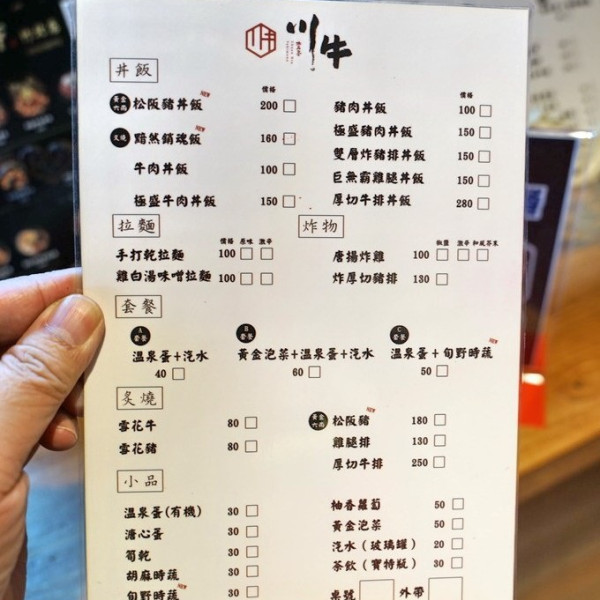 川牛
丼飯
價格
松阪豬丼飯 NEW 200
黯然銷魂飯 NEW 160
牛肉丼飯 100
極盛牛肉丼飯 150
價格
豬肉丼飯 100
極盛豬肉丼飯 150
雙層炸豬排丼飯 150
巨無霸雞腿丼飯 150
厚切牛排丼飯 280
拉麵
價格 原味 激辛
手打乾拉麵 100
雞白湯味噌拉麵 100
炸物
椒鹽 激辛 和風芥末
唐揚炸雞 100
炸厚切豬排 130
套餐
A套餐
溫泉蛋+汽水
40
B套餐
黃金泡菜+溫泉蛋+汽水
60
C套餐
溫泉蛋+旬野時蔬 NEW
50
炙燒
雪花牛 80
雪花豬 80
松阪豬 NEW 180
雞腿排 130
厚切牛排 250
小品
溫泉蛋(有機) 30
溏心蛋 30
筍乾 30
胡麻時蔬 30
旬野時蔬 NEW 30
柚香蘿蔔 50
黃金泡菜 50
汽水(玻璃罐) 20
茶飲(寶特瓶) 30
桌號 外帶